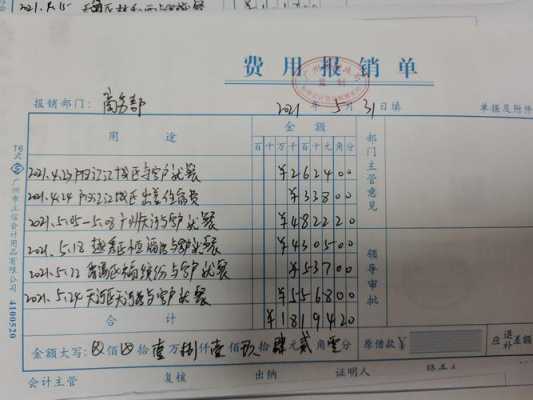 2021.5.15
费用报销单
报销部门：商务部 2021年5月31日填 单据及附件
用途 金额 部门主管意见
百十万千百十元角分
2021.4.23 江城区与客户就餐 ¥262400
2021.4.24 江城区出差住宿费 ¥33800
2021.5.05-5.08广州 与客户就餐 ¥482220
2021.5.18 越秀区 与客户就餐 ¥430500
领导审批
2021.5.22 番禺区 与客户就餐 ¥53700
2021.5.24 天河区天河 与客户就餐 ¥556800
合计 ¥1819420
金额大写：⊗佰⊗拾壹万捌仟壹佰玖拾肆元贰角零分 原借款¥ 应退补差额
会计主管 复核 出纳 证明人
广州市立信会计用品有限公司 4100520